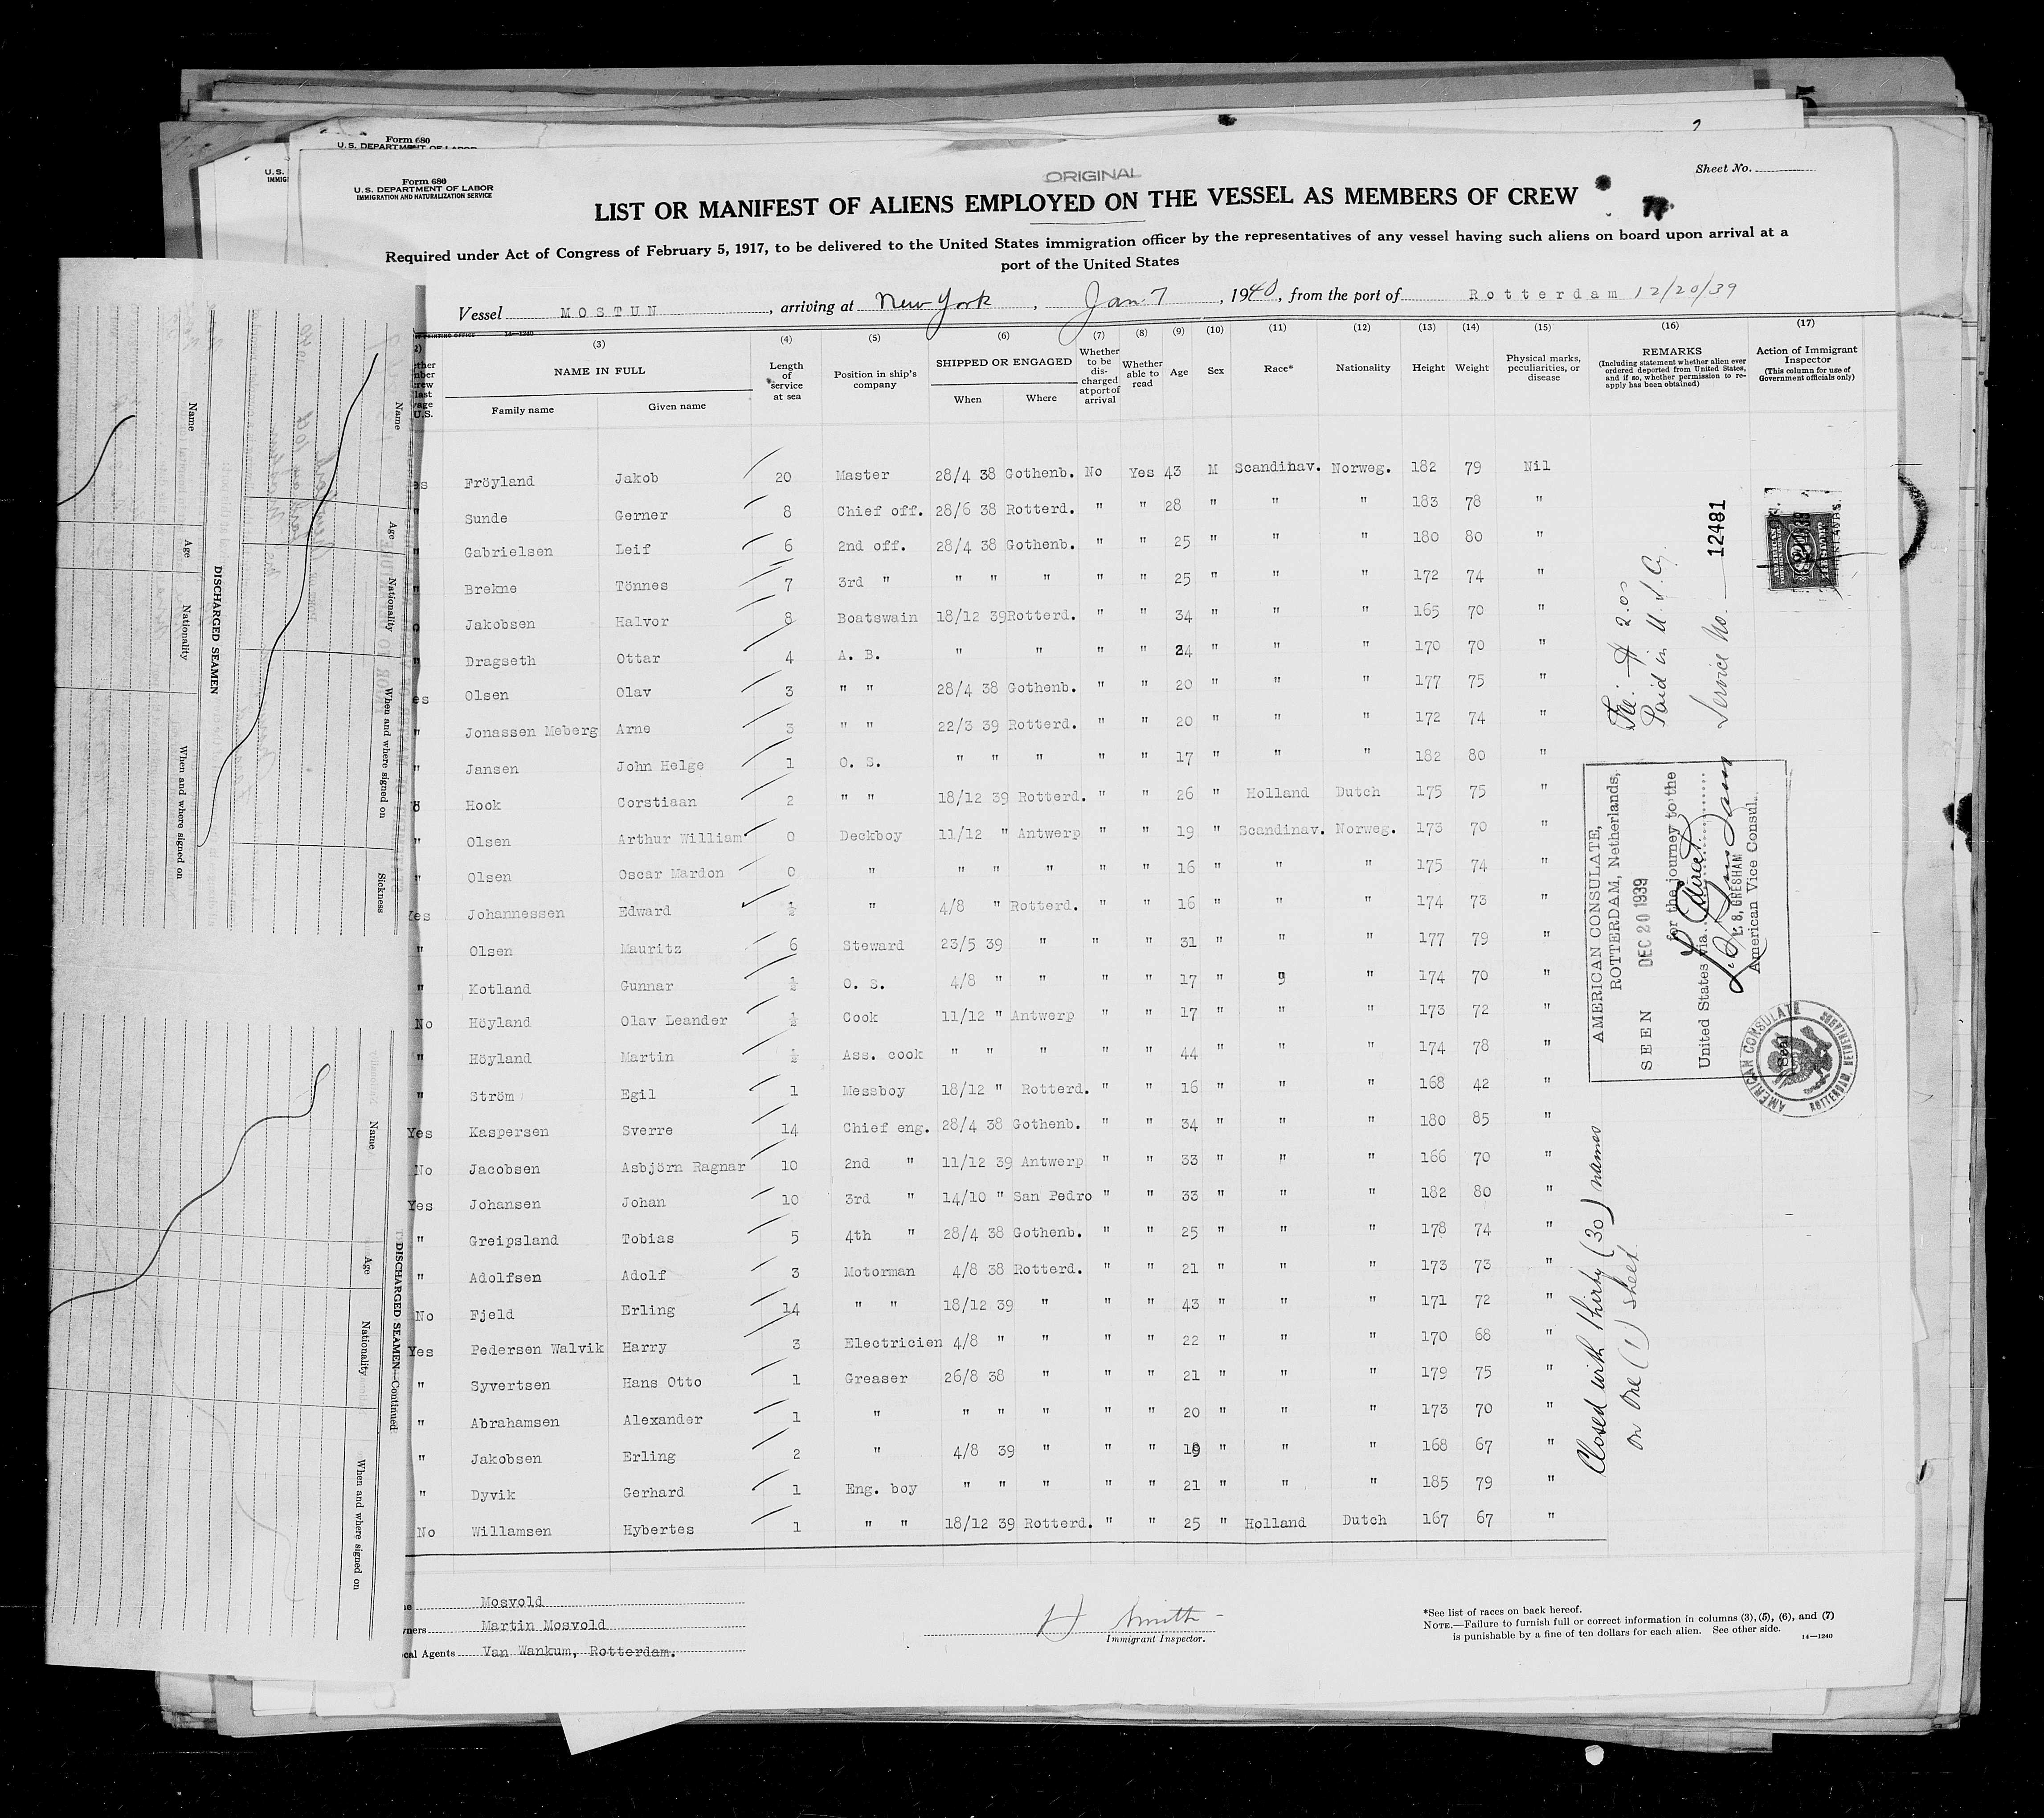 Form 680
U. S. DEPARTMENT OF LABOR
U. S.
IMMIGR
Form 680
U. S. DEPARTMENT OF LABOR
IMMIGRATION AND NATURALIZATION SERVICE
ORIGINAL
Sheet No.
LIST OR MANIFEST OF ALIENS EMPLOYED ON THE VESSEL AS MEMBERS OF CREW
Required under Act of Congress of February 5, 1917, to be delivered to the United States immigration officer by the representatives of any vessel having such aliens on board upon arrival at a
port of the United States
Vessel MOSTUN, arriving at New York, Jan. 7, 1940, from the port of Rotterdam 12/20/39
(3) (4) (5) (6) (7) (8) (9) (10) (11) (12) (13) (14) (15) (16) (17)
NAME IN FULL
Family name Given name
Length of service at sea
Position in ship's company
SHIPPED OR ENGAGED
When Where
Whether to be discharged at port of arrival
Whether able to read
Age
Sex
Race*
Nationality
Height
Weight
Physical marks, peculiarities, or disease
REMARKS
(Including statement whether alien ever ordered deported from United States, and if so, whether permission to reapply has been obtained)
Action of Immigrant Inspector
(This column for use of Government officials only)
es Fröyland Jakob 20 Master 28/4 38 Gothenb. No Yes 43 M Scandinav. Norweg. 182 79 Nil
" Sunde Gerner 8 Chief off. 28/6 38 Rotterd. " " 28 " " " 183 78 "
" Gabrielsen Leif 6 2nd off. 28/4 38 Gothenb. " " 25 " " " 180 80 "
" Brekne Tönnes 7 3rd " " " " " " 25 " " " 172 74 "
o Jakobsen Halvor 8 Boatswain 18/12 39 Rotterd. " " 34 " " " 165 70 "
" Dragseth Ottar 4 A. B. " " " " 24 " " " 170 70 "
es Olsen Olav 3 " " 28/4 38 Gothenb. " " 20 " " " 177 75 "
" Jonassen Meberg Arne 3 " " 22/3 39 Rotterd. " " 20 " " " 172 74 "
" Jansen John Helge 1 O. S. " " " " " 17 " " " 182 80 "
o Hook Corstiaan 2 " " 18/12 39 Rotterd. " " 26 " Holland Dutch 175 75 "
" Olsen Arthur William 0 Deckboy 11/12 " Antwerp " " 19 " Scandinav. Norweg. 173 70 "
" Olsen Oscar Mardon 0 " " " " " " 16 " " " 175 74 "
Yes Johannessen Edward ½ " 4/8 " Rotterd. " " 16 " " " 174 73 "
" Olsen Mauritz 6 Steward 23/5 39 " " " 31 " " " 177 79 "
" Kotland Gunnar ½ O. S. 4/8 " " " " 17 " 9 " 174 70 "
No Höyland Olav Leander ½ Cook 11/12 " Antwerp " " 17 " " " 173 72 "
" Höyland Martin ½ Ass. cook " " " " " 44 " " " 174 78 "
" Ström Egil 1 Messboy 18/12 " Rotterd. " " 16 " " " 168 42 "
Yes Kaspersen Sverre 14 Chief eng. 28/4 38 Gothenb. " " 34 " " " 180 85 "
No Jacobsen Asbjörn Ragnar 10 2nd " 11/12 39 Antwerp " " 33 " " " 166 70 "
Yes Johansen Johan 10 3rd " 14/10 " San Pedro " " 33 " " " 182 80 "
" Greipsland Tobias 5 4th " 28/4 38 Gothenb. " " 25 " " " 178 74 "
" Adolfsen Adolf 3 Motorman 4/8 38 Rotterd. " " 21 " " " 173 73 "
No Fjeld Erling 14 " " 18/12 39 " " " 43 " " " 171 72 "
Yes Pedersen Walvik Harry 3 Electricien 4/8 " " " " 22 " " " 170 68 "
" Syvertsen Hans Otto 1 Greaser 26/8 38 " " " 21 " " " 179 75 "
" Abrahamsen Alexander 1 " " " " " " 20 " " " 173 70 "
" Jakobsen Erling 2 " 4/8 39 " " " 19 " " " 168 67 "
" Dyvik Gerhard 1 Eng. boy " " " " " 21 " " " 185 79 "
No Willamsen Hybertes 1 " " 18/12 39 Rotterd. " " 25 " Holland Dutch 167 67 "
Fee: $ 2.00
Paid in U. S. Cy.
Service No. 12481
AMERICAN CONSULATE,
ROTTERDAM, Netherlands,
SEEN DEC 20 1939
for the journey to the
United States via Direct
L. S. GRESHAM
American Vice Consul.
Seal
AMERICAN CONSULATE
ROTTERDAM, NETHERLANDS
Closed with thirty (30) names
on one (1) sheet
Mosvold
Martin Mosvold
cal Agents Van Wankum, Rotterdam.
H Smith
Immigrant Inspector.
*See list of races on back hereof.
NOTE.—Failure to furnish full or correct information in columns (3), (5), (6), and (7)
is punishable by a fine of ten dollars for each alien. See other side.
14—1240
DISCHARGED SEAMEN
Name
Age
Nationality
When and where signed on
Name
Age
Nationality
When and where signed on
Sickness
DISCHARGED SEAMEN—Continued
Name
Age
Nationality
When and where signed on